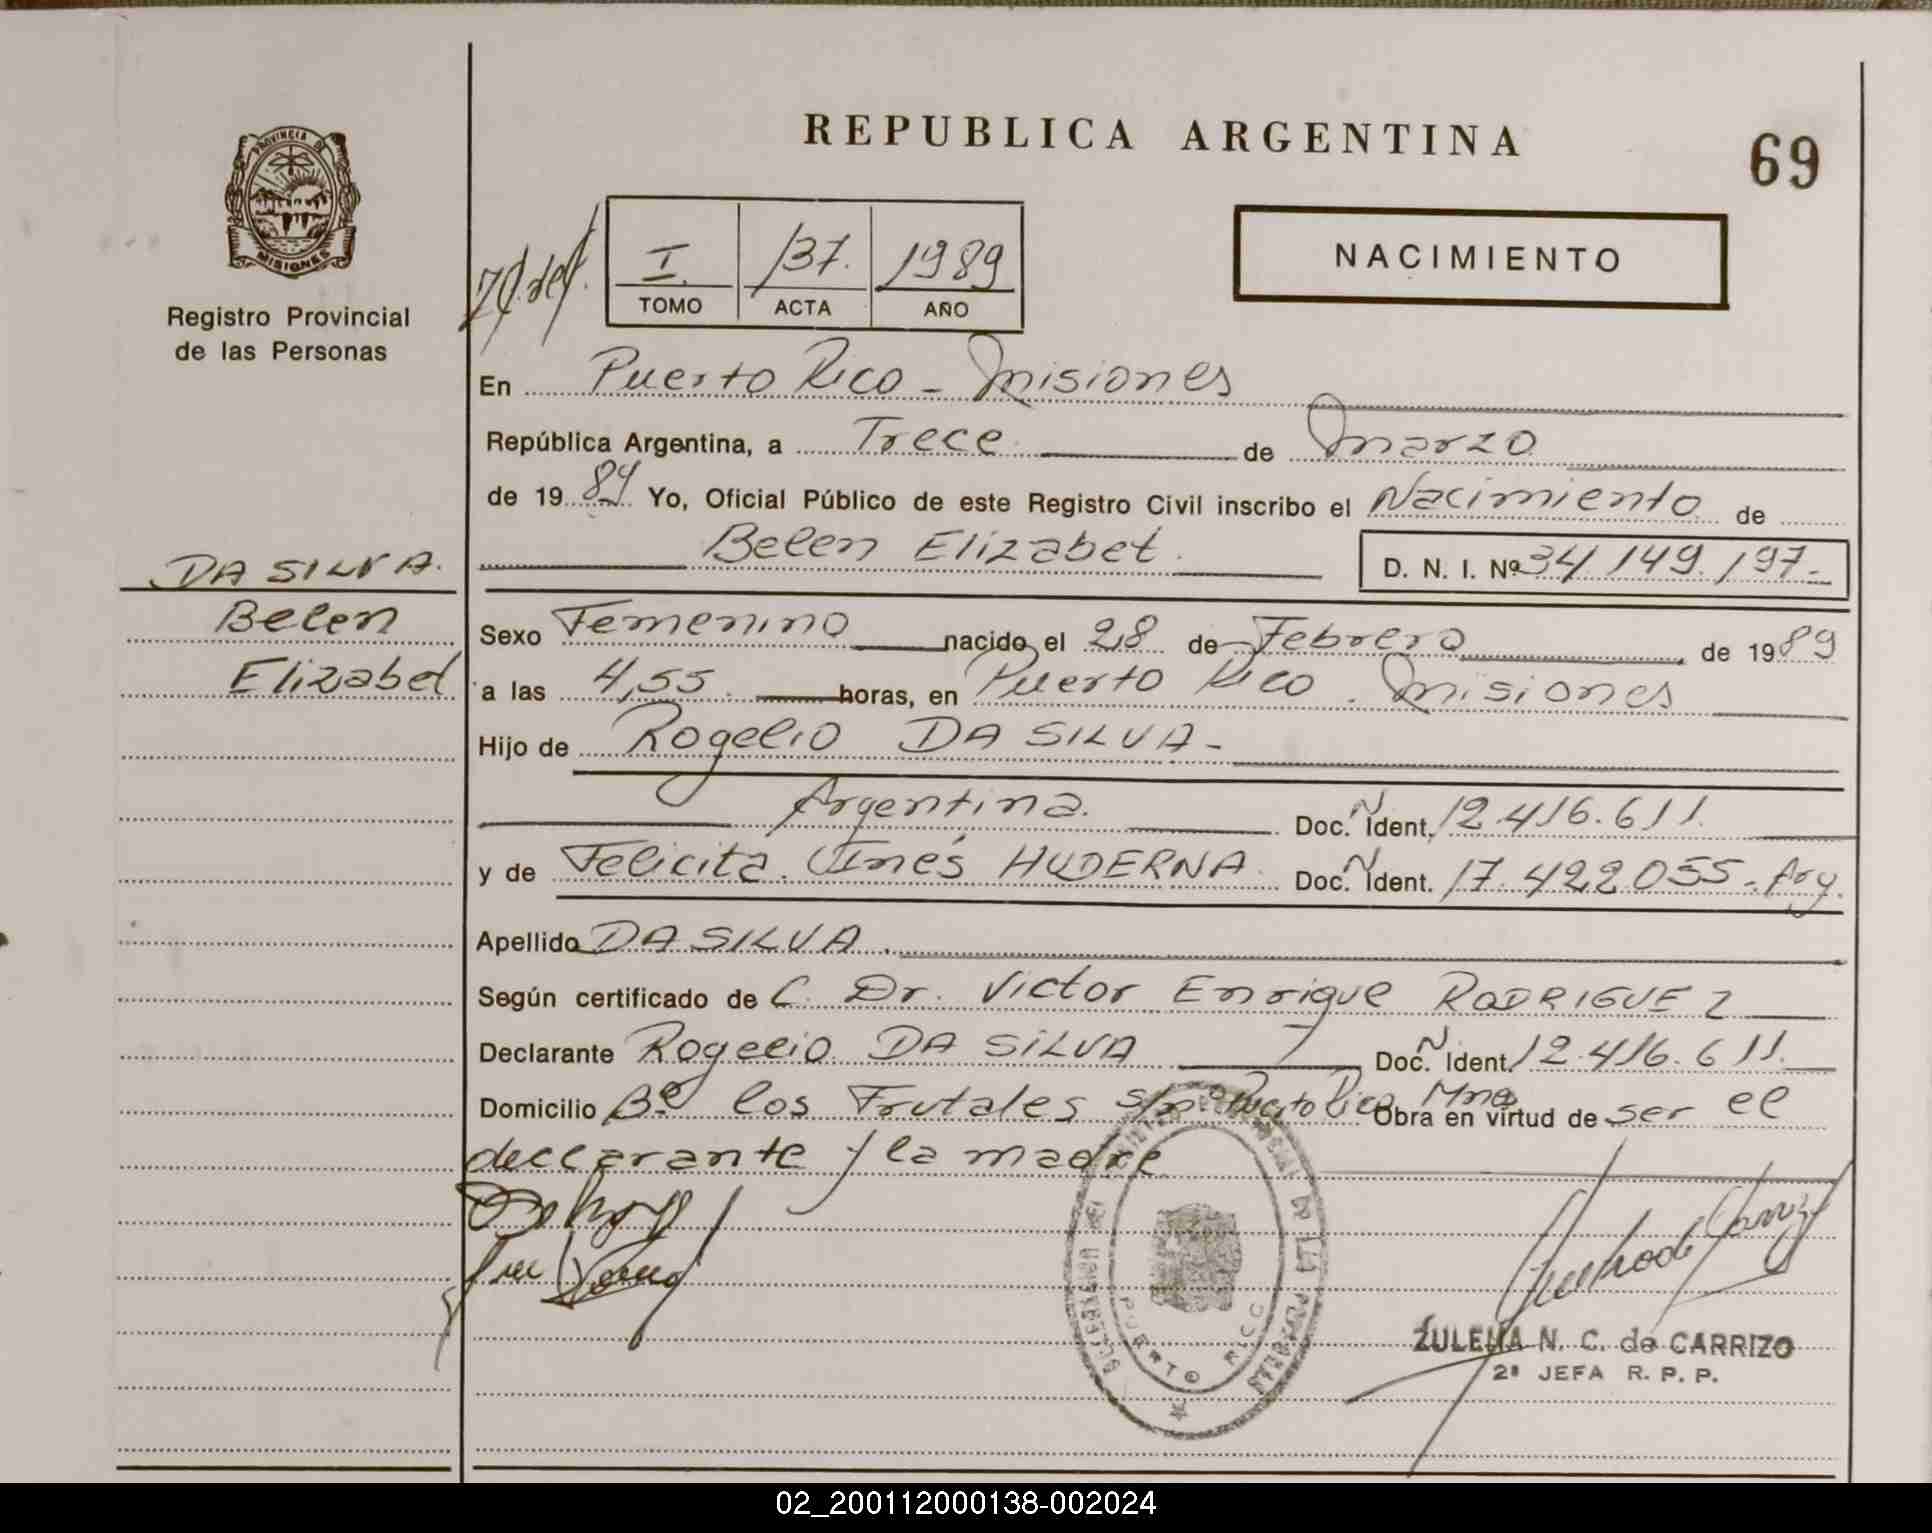 REPUBLICA ARGENTINA
69
PROVINCIA DE
MISIONES
Registro Provincial
de las Personas
I. 137. 1989
TOMO ACTA AÑO
NACIMIENTO
En Puerto Rico - Misiones
República Argentina, a Trece de Marzo
de 19 89 Yo, Oficial Público de este Registro Civil inscribo el Nacimiento de
Belen Elizabet. D. N. I. Nº 34.149.197.-
DA SILVA.
Belen
Elizabet
Sexo Femenino nacido el 28 de Febrero de 1989
a las 4,55. horas, en Puerto Rico. Misiones
Hijo de Rogelio DA SILVA-
Argentina. Doc. Ident. 12.416.611.
y de Felicita Inés HUDERNA. Doc. Ident. 17.422.055. Arg.
Apellido DA SILVA.
Según certificado de C. Dr. Victor Enrique RODRIGUEZ
Declarante Rogelio DA SILVA Doc. Ident. 12.416.611.
Domicilio Bº los Frutales s/nº Puerto Rico Mnes Obra en virtud de ser el
declarante y la madre
PUERTO RICO
ZULEMA N. C. de CARRIZO
2ª JEFA R. P. P.
02_200112000138-002024